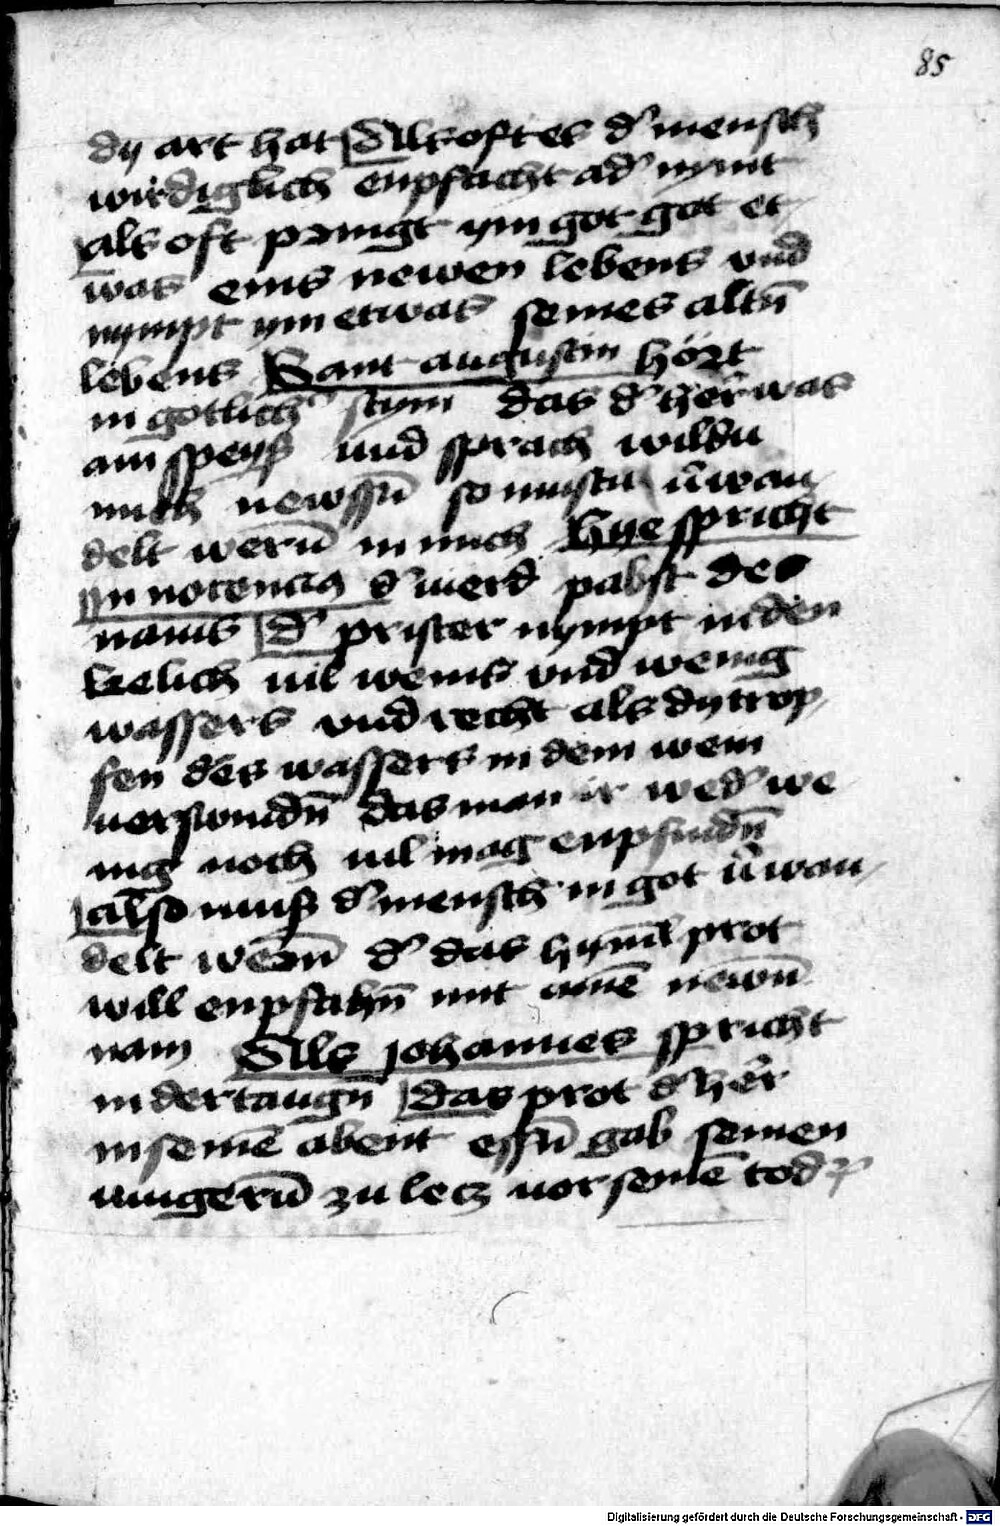 85
dy art hat Als oft es d' mensch
wirdiglich enpfacht ad' nymt
als oft pringt ym got got et
was eins newen lebens vnd
nympt ym etwas seines altn̄
lebens Sant augustin hört
in gotlich' stym das d' her was
ain speyß und sprach wildu
mich newssn̄ so mustu v̄wan
delt wern̄ in mich Hye spricht
Innocencius d' vierd pabst des
nams d' prister nympt in den
kelich vil weins vnd wenig
wassers vnd recht als dy trop
fen des wassers in dem wein
verswindn̄ das man ir wed' we
nig noch vil mag enpfindn̄
also muß d' mensch in got v̄wan
delt wern̄ d' das hyml prot
will enpfahn̄ mit aine newn̄
nam Als johannes spricht
in der taugn̄ das prot d' her
in seinē abent essn̄ gab seinen
iungern̄ zu lecz vor seinē tod
Digitalisierung gefördert durch die Deutsche Forschungsgemeinschaft - DFG